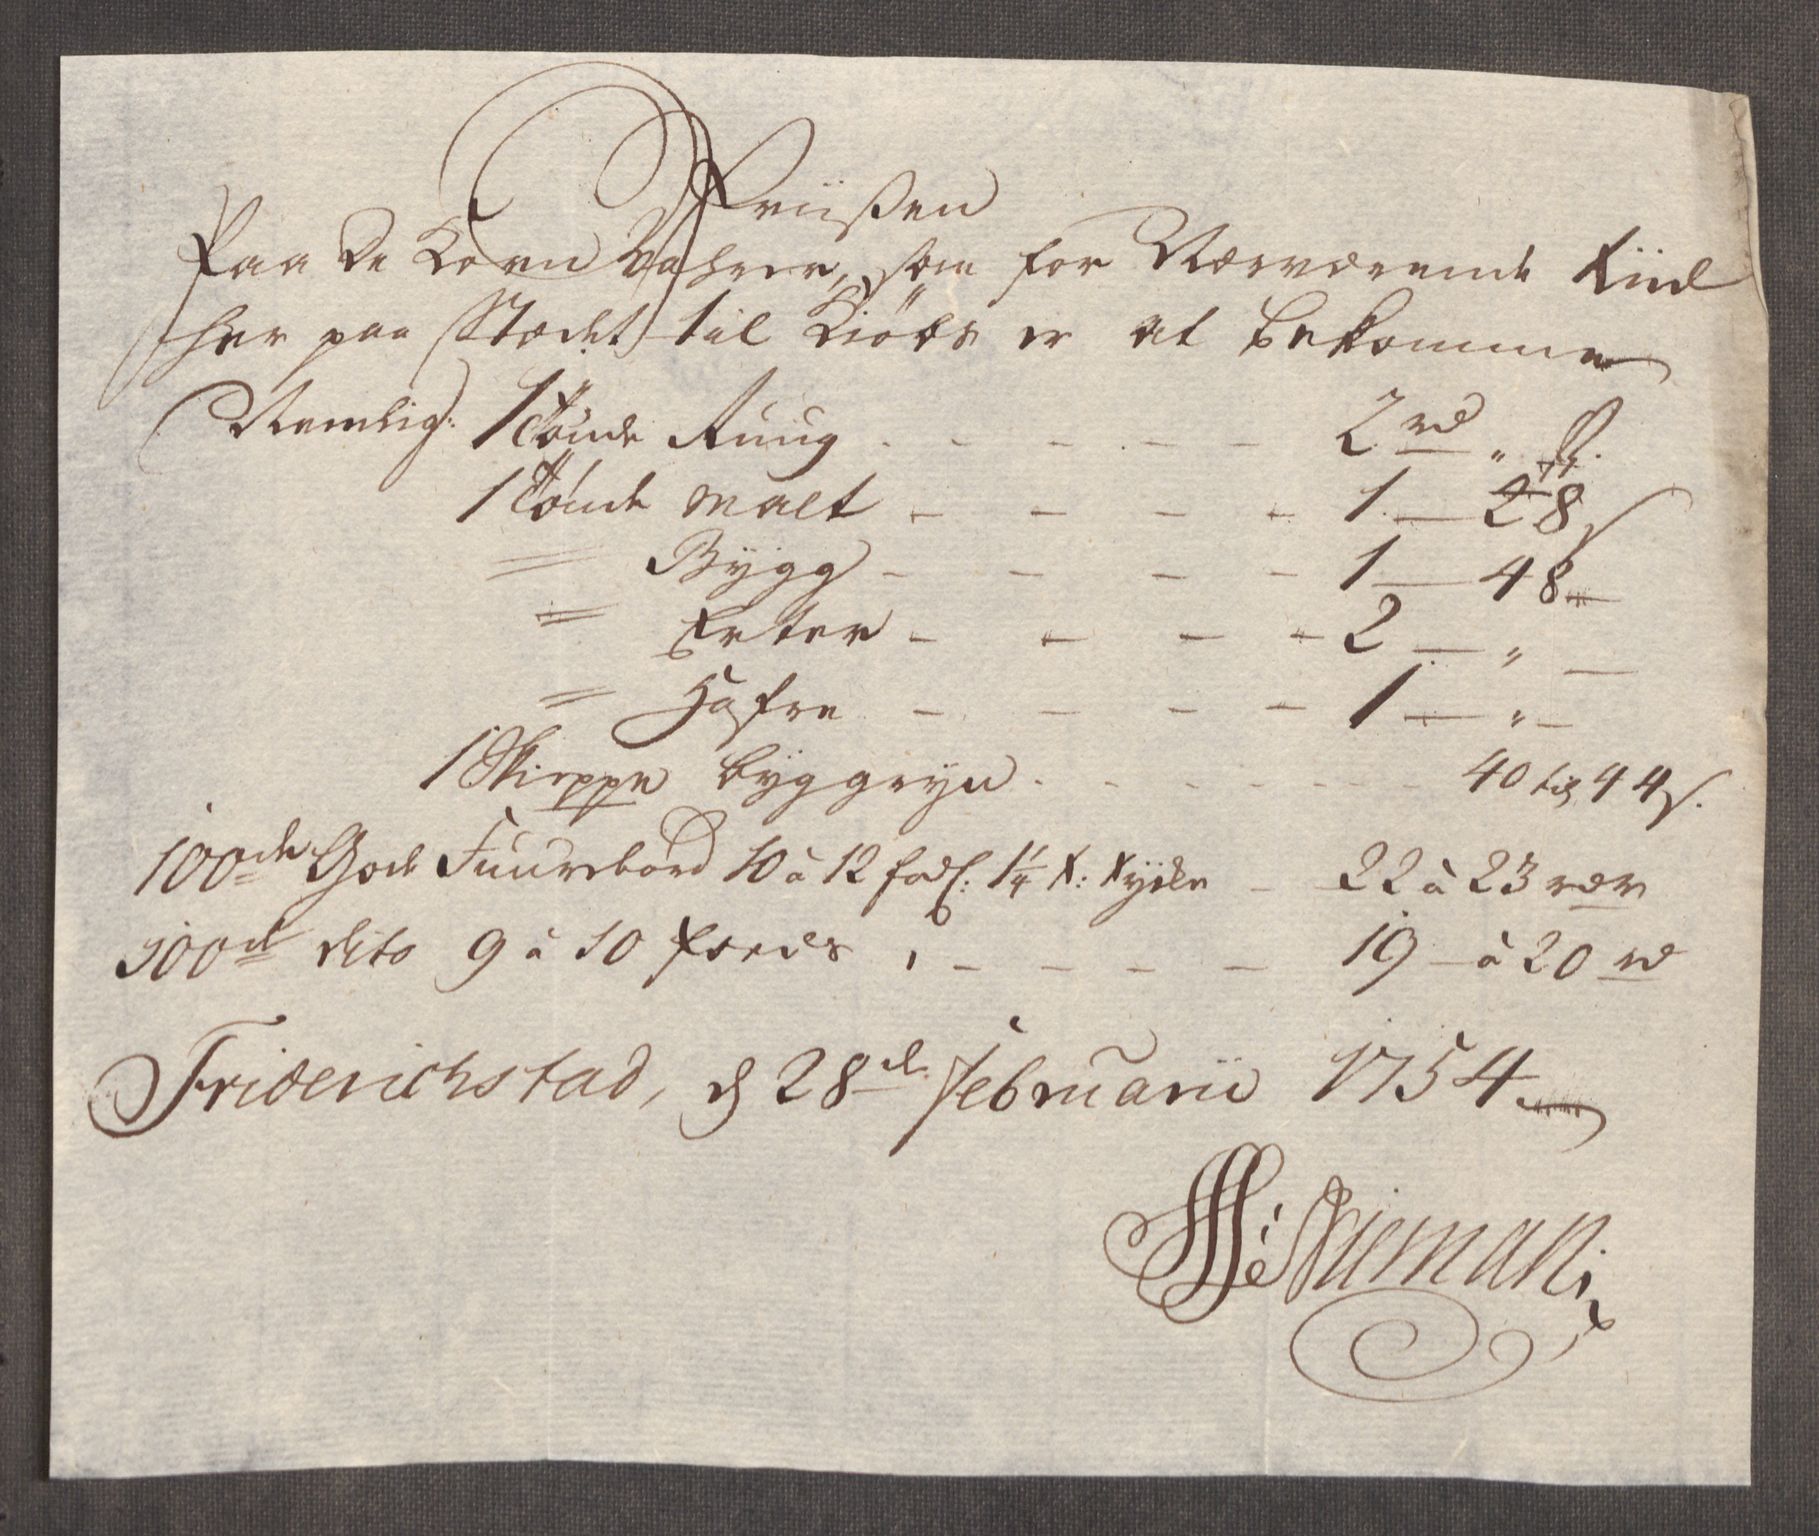 Priisen
Paa De Korn Vahrer, som for Nærværende tiid
her paa Stædet til Kiöbs er at bekomme
Nemlig: 1 Tönde Ruug - - - - 2 rd „ s.
1 Tönde Malt - - - - 1 — 28 s
= Bÿgg - - - - 1 — 48 —
= Erter - - - - 2 — „ —
= Hafre - - - - 1 — „ —
1 Skieppe byggryn - - - - 40 til 44 s.
100de Gode Fuurebord 10 à 12 fod: 1¼ t: tycke - 22 à 23 rdr
100de dito 9 à 10 foeds - - - - 19 — à 20 rd
Friderichstad, d 28de Februarii 1754
Nieman